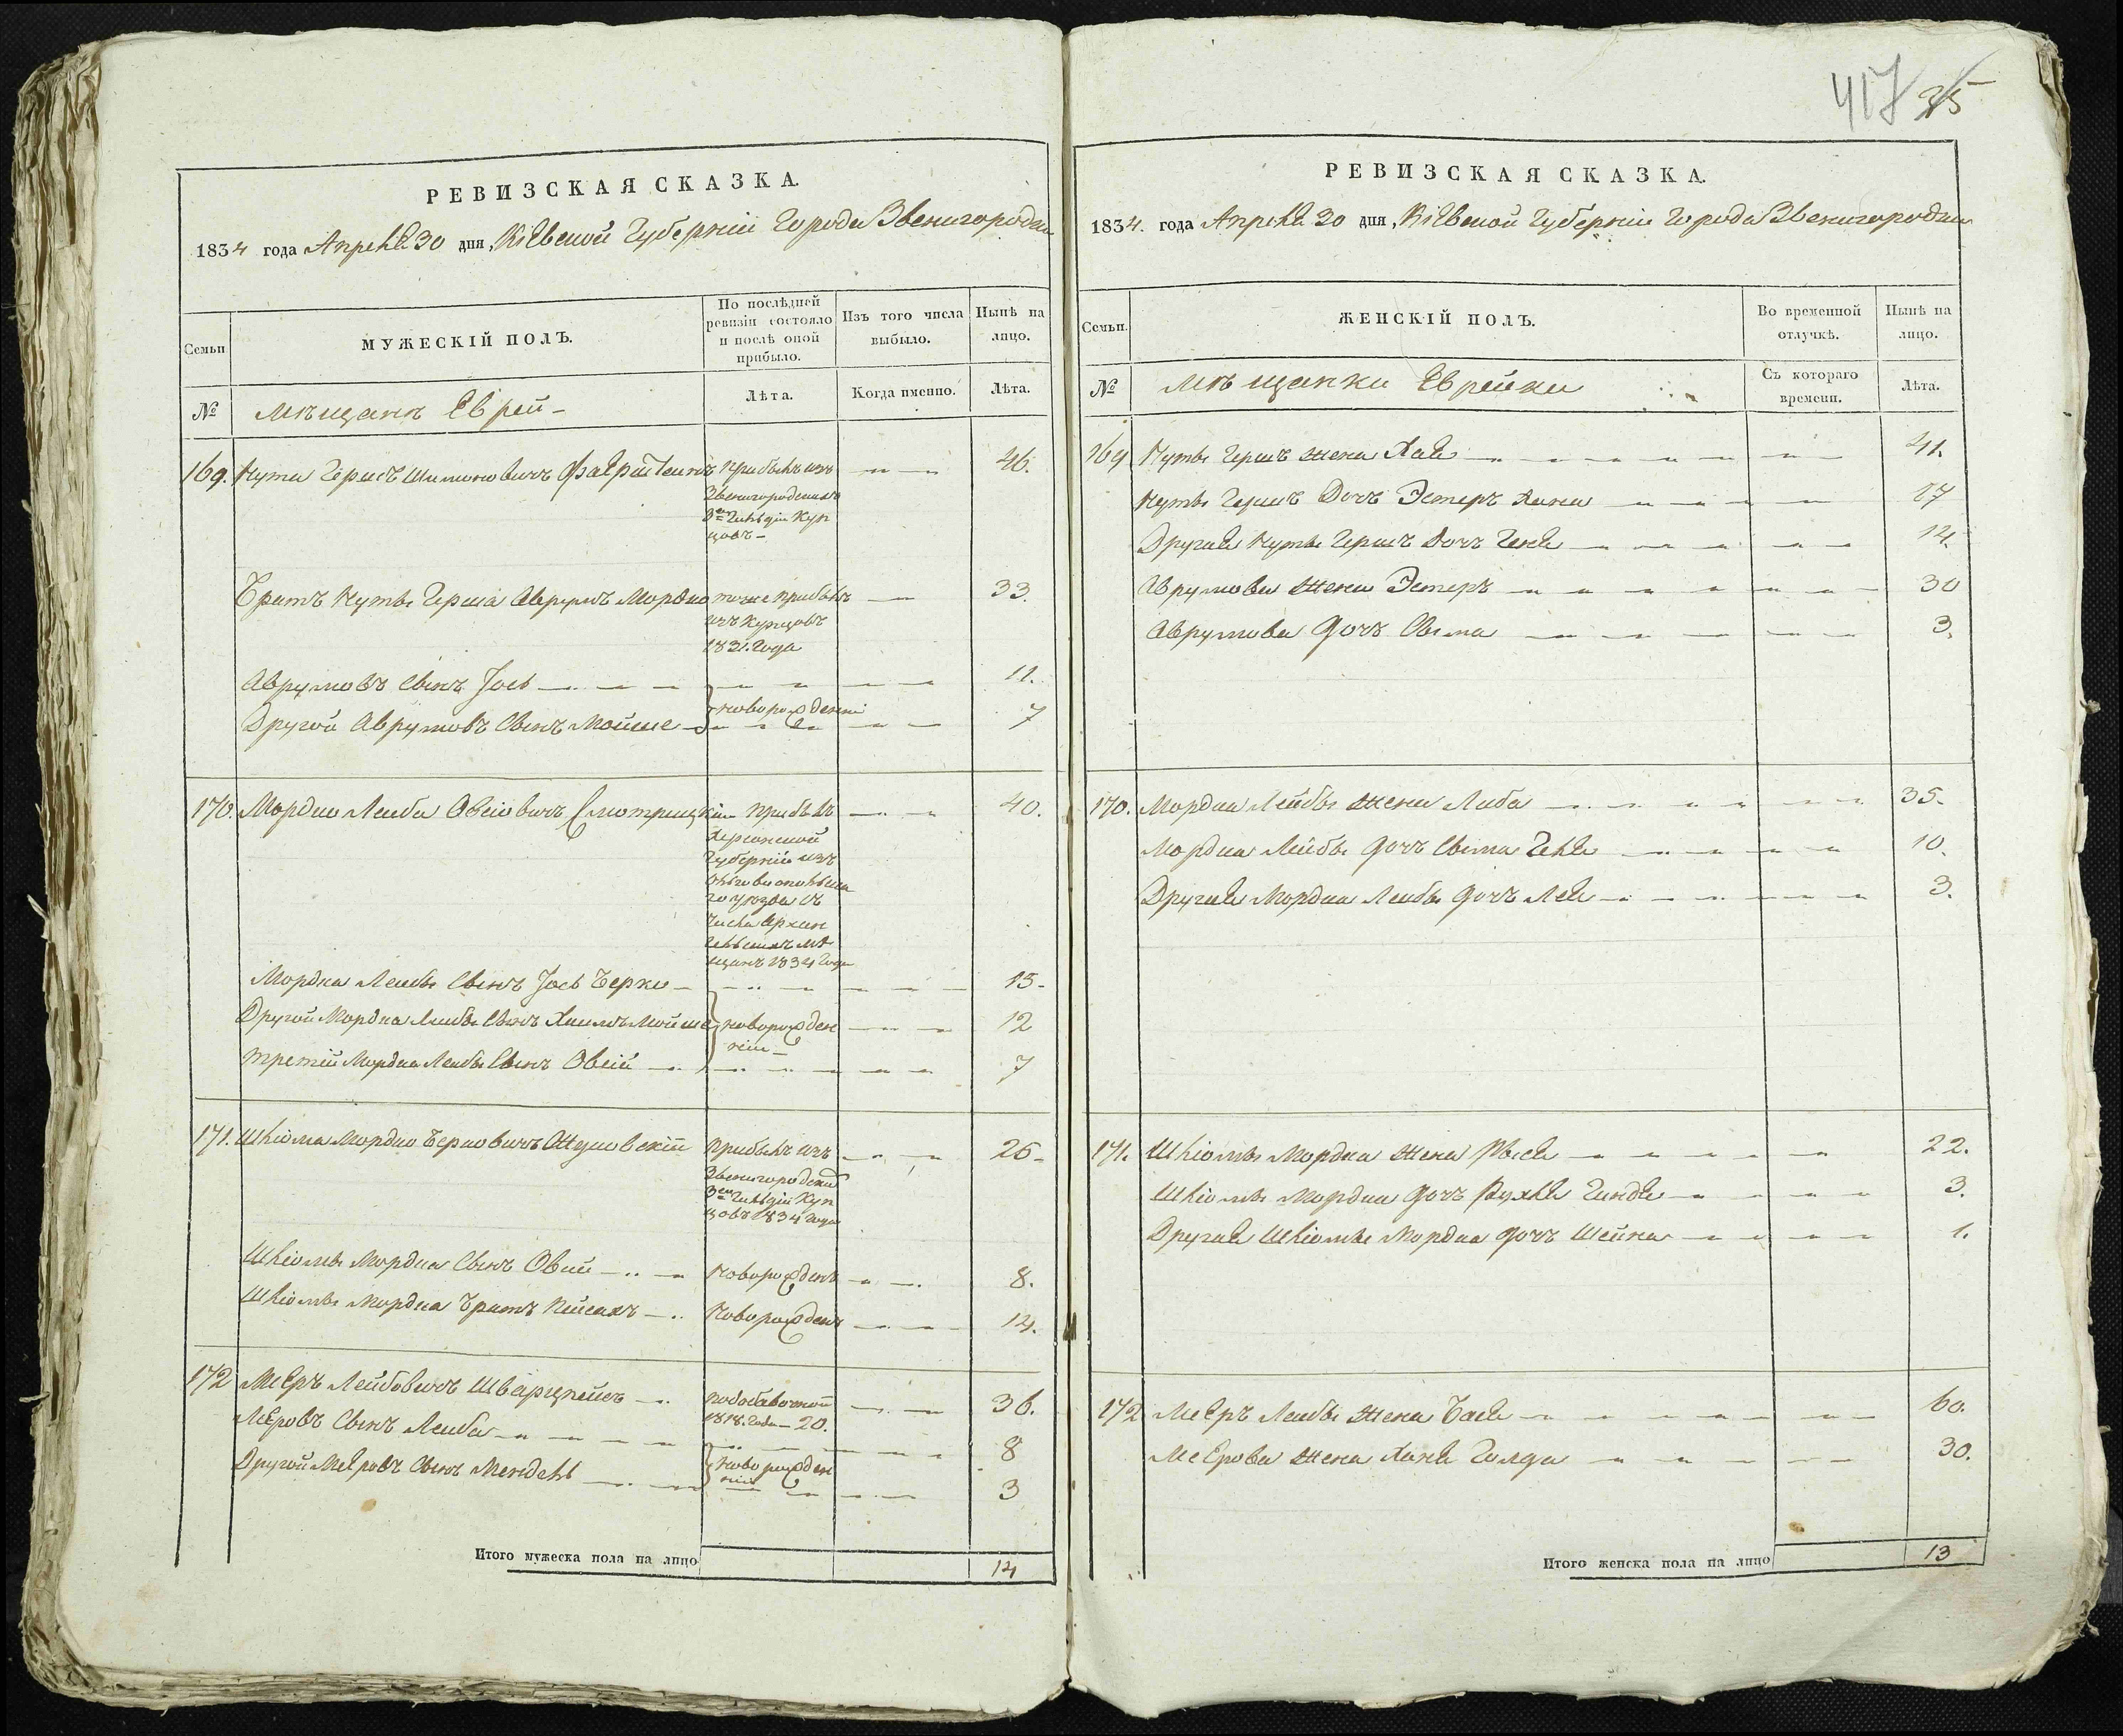 417 35
РЕВИЗСКАЯ СКАЗКА.
1834 года Апреля 30 дня, Кіевской Губерніи Города Звенигородки
Семьи
МУЖЕСКІЙ ПОЛЪ.
По послѣдней ревизіи состояло и послѣ оной прибыло.
Изъ того числа выбыло.
Нынѣ на лицо.
№
Мѣщанъ Еврей
Лѣта.
Когда именно.
Лѣта.
169. Кута Гершъ Шимоновичъ прибылъ изъ 46.
Звенигородскихъ
3ей Гильдіи Куп
цовъ
Братъ Куты Герша Аврумъ Мордко тоже прибылъ 33.
изъ Купцовъ
1831. Года
Аврумовъ Сынъ Іось 11.
новорожденніи
Другой Аврумовъ Сынъ Мойше 7
170. Мордко Лейба Овсіовичъ Смотрицкій прибылъ 40.
Херсонской
Губерніи изъ
Ольговопольска
го уѣзда съ
числа
мѣ
щанъ 1834 Года
Мордка Лейбы Сынъ Іось Берко 15
Другой Мордка Лейбы Сынъ Хаимъ Мойше новорожден 12
ніи
Третій Мордка Лейбы Сынъ Овсій 7
171. Шліома Мордко Берковичъ прибылъ изъ 26
Звенигородских
3ей Гильдіи Куп
цовъ 1834 Года
Шліомы Мордка Сынъ Овсій Новорожденъ 8.
Шліомы Мордка Братъ Пейсахъ Новорожденъ 14.
172 Мееръ Лейбовичъ подобавочной 36.
1818. Года 20.
Меровъ Сынъ Лейба 8
новорожден
ніи
Другой Меировъ Сынъ Мендель 3
Итого мужеска пола на лицо 14
РЕВИЗСКАЯ СКАЗКА.
1834. года Апреля 30 дня, Кіевской Губерніи Города Звенигородки
Семьи.
ЖЕНСКІЙ ПОЛЪ.
Во временной отлучкѣ.
Нынѣ на лицо.
№
Мѣщанки Еврейки
Съ котораго времени.
Лѣта.
169 Куты Гершъ жена Хая 41.
Куты Гершъ Дочъ Эстеръ Хана 17
Другая Куты Гершъ Дочъ Геня 14.
Аврумова жена Эстеръ 30
Аврумова дочъ Сыма 3.
170. Мордка Лейбы жена Либа 35.
Мордка Лейбы дочъ Сыма 10.
Другая Мордка Лейбы дочъ Лея 3.
171. Шліомы Мордка жена Рыся 22.
Шліомы Мордка дочъ Рухля Гиндя 3.
Другая Шліомы Мордка дочъ Шейна 1.
172 Мееръ Лейбы жена Бася 60.
Меерова жена Ханя Голда 30.
Итого женска пола на лицо 13